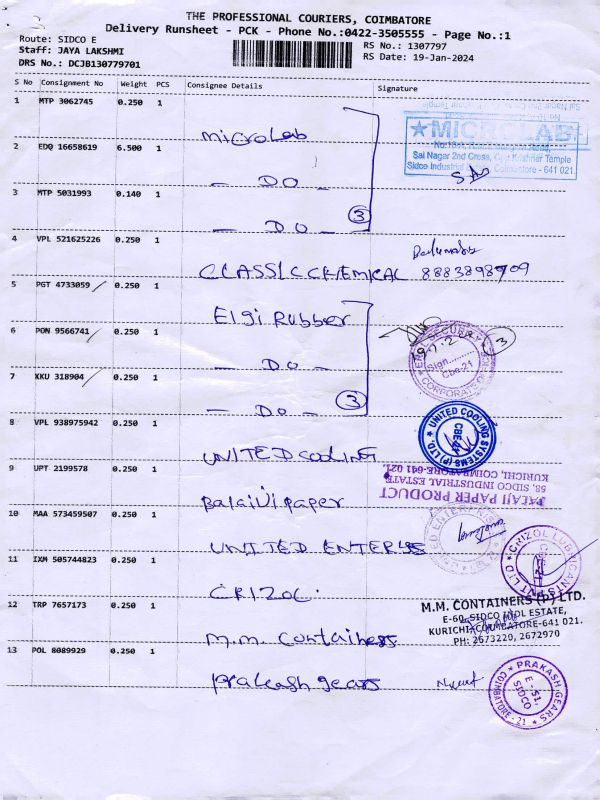 THE PROFESSIONAL COURIERS, COIMBATORE
Delivery Runsheet - PCK - Phone No.:0422-3505555 - Page No.:1
Route: SIDCO E
Staff: JAYA LAKSHMI
DRS No.: DCJB130779701
RS No.: 1307797
RS Date: 19-Jan-2024
S No Consignment No Weight PCS Consignee Details Signature
1 MTP 3062745 0.250 1 microLab
★MICROLAB
Sai Nagar 2nd Cross, Opp Krishner Temple
Sidco Industrial Estate, Coimbatore - 641 021.
2 EDQ 16658619 6.500 1 - DO -
3 MTP 5031993 0.140 1 - DO - 3
4 VPL 521625226 0.250 1 CLASSIC CHEMICAL 8883898909
5 PGT 4733059 0.250 1 Elgi Rubber
6 PON 9566741 0.250 1 - DO -
ELGI SECURITY
Sign
Cbe-21
CORPORATE
3
7 KKU 318904 0.250 1 - DO - 3
8 VPL 938975942 0.250 1 UNITED cooling
UNITED COOLING SYSTEMS (P) LTD.
CBE-21
9 UPT 2199578 0.250 1 Balaji paper
BALAJI PAPER PRODUCT
58, SIDCO INDUSTRIAL ESTATE
KURICHI, COIMBATORE-641 021.
10 MAA 573459507 0.250 1 UNITED ENTER
UNITED ENTERPRISES
11 IXM 505744823 0.250 1 CRIZOL
CRIZOL LUBRICANTS PVT LTD
12 TRP 7657173 0.250 1 m.m. containers
M.M. CONTAINERS (P) LTD.
E-60, SIDCO INDL ESTATE,
KURICHI, COIMBATORE-641 021.
PH: 2673220, 2672970
13 POL 8089929 0.250 1 prakash gears
PRAKASH GEARS
E-51,
SIDCO
COIMBATORE - 21